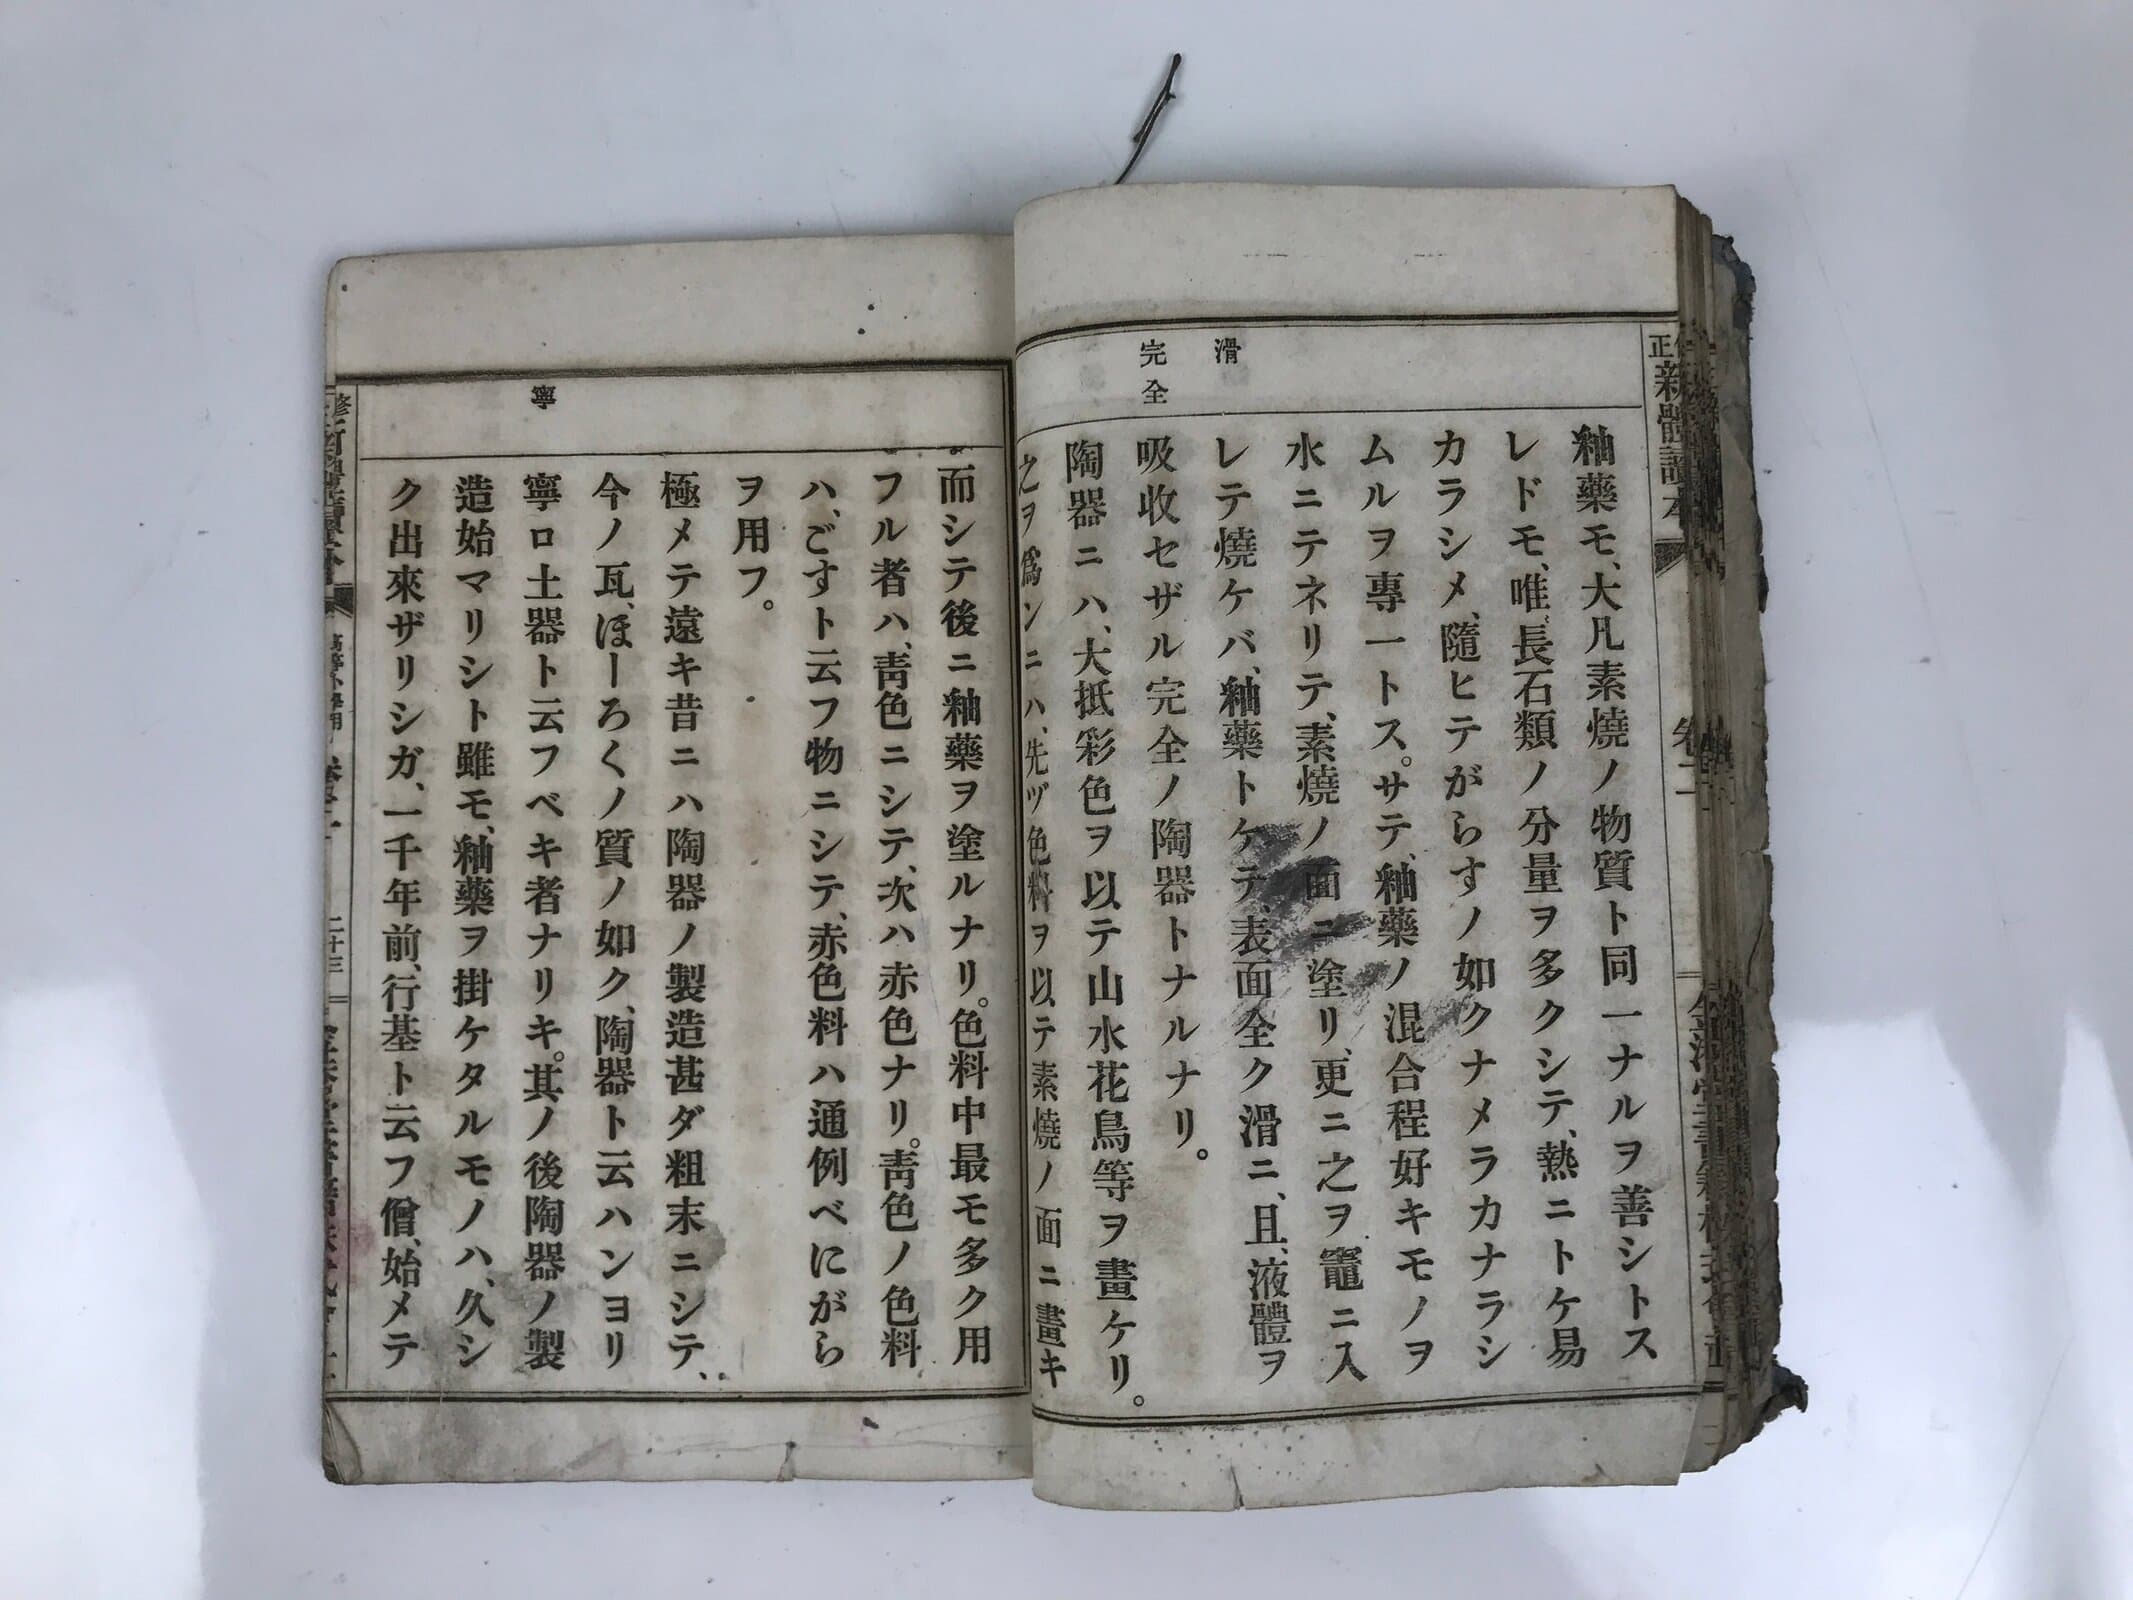 新體讀本
卷二
滑
完全
釉藥モ、大凡素燒ノ物質ト同一ナルヲ善シトス
レドモ、唯、長石類ノ分量ヲ多クシテ、熱ニトケ易
カラシメ、隨ヒテがらすノ如クナメラカナラシ
ムルヲ專一トス。サテ、釉藥ノ混合程好キモノヲ
水ニテネリテ、素燒ノ面ニ塗リ、更ニ之ヲ竈ニ入
レテ燒ケバ、釉藥トケテ、表面全ク滑ニ、且、液體ヲ
吸收セザル完全ノ陶器トナルナリ。
陶器ニハ、大抵彩色ヲ以テ山水花鳥等ヲ畫ケリ。
之ヲ爲ンニハ、先ヅ色料ヲ以テ素燒ノ面ニ畫キ
寧
而シテ後ニ釉藥ヲ塗ルナリ。色料中最モ多ク用
フル者ハ、靑色ニシテ、次ハ赤色ナリ。靑色ノ色料
ハ、ごすト云フ物ニシテ、赤色料ハ通例べにがら
ヲ用フ。
極メテ遠キ昔ニハ陶器ノ製造甚ダ粗末ニシテ、
今ノ瓦、ほーろくノ質ノ如ク、陶器ト云ハンヨリ
寧ロ土器ト云フベキ者ナリキ。其ノ後陶器ノ製
造始マリシト雖モ、釉藥ヲ掛ケタルモノハ、久シ
ク出來ザリシガ、一千年前、行基ト云フ僧、始メテ
二十三